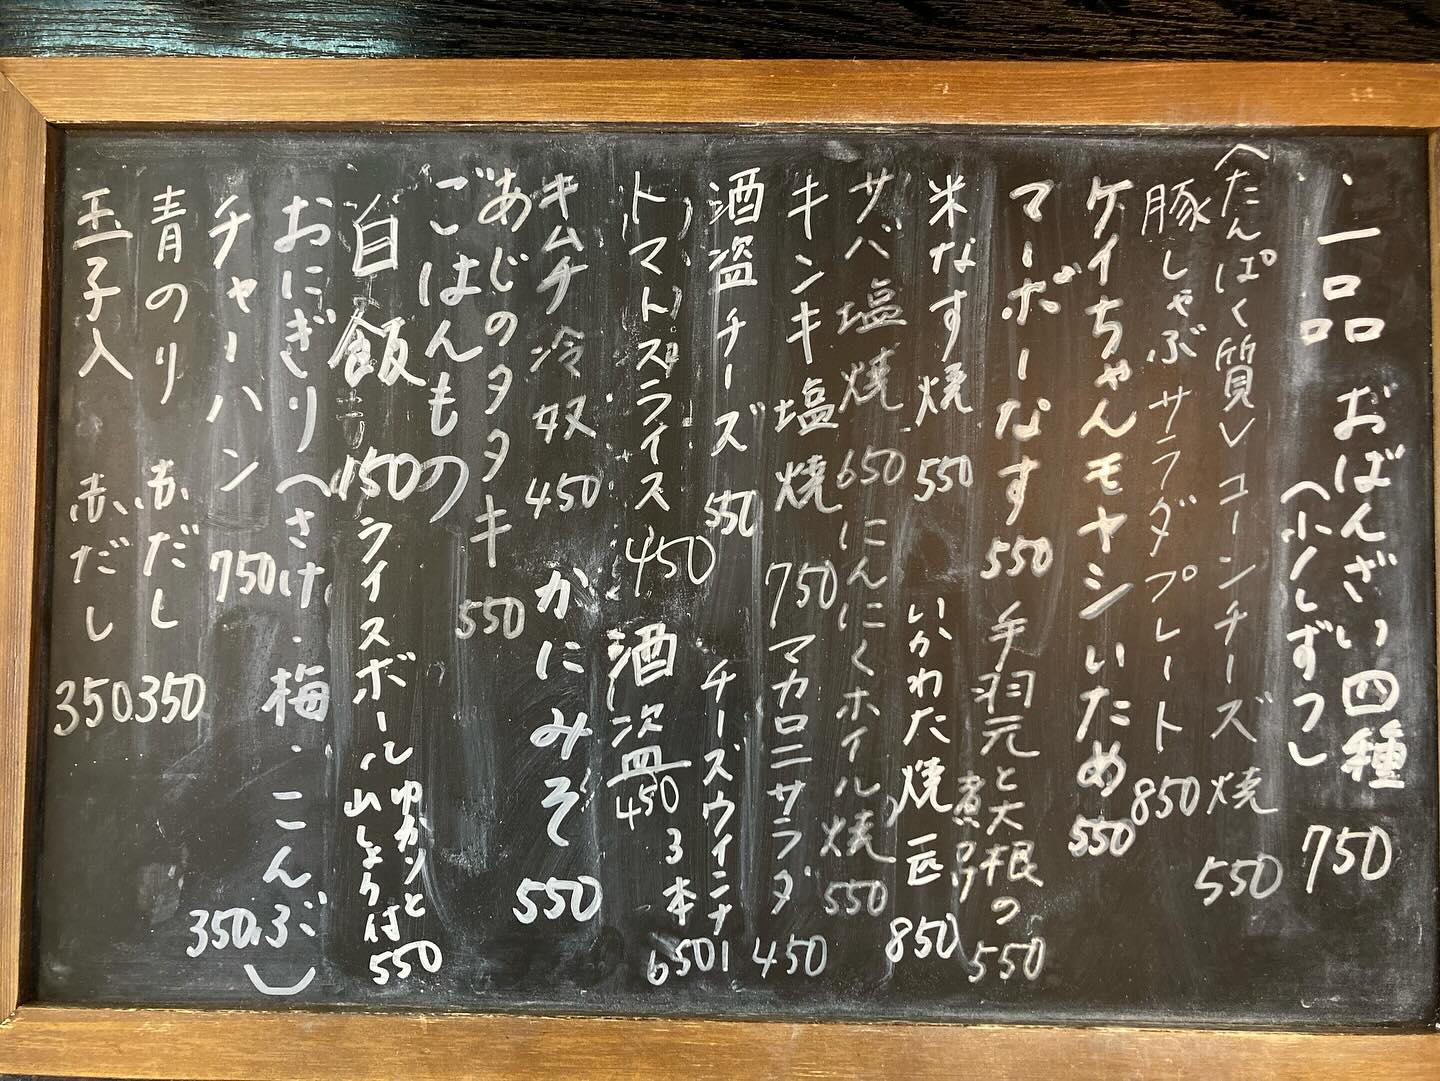 一品 おばんざい四種 750
（小しずつ）
（たんぱく質） コーンチーズ焼 550
豚しゃぶサラダプレート 850
ケイちゃんモヤシいため 550
マーボーなす 550 手羽元と大根の煮 550
米なす焼 550 いかわた焼 850
サバ塩焼 650 にんにくホイル焼 550
キンキ塩焼 750 マカロニサラダ 450
酒盗チーズ 550 チーズウインナー 3本 650
トマトスライス 450 酒盗 450
キムチ冷奴 450 かにみそ 550
あじのタタキ 550
ごはんもの
白飯 150 ライスボール ゆかりと山しょう付 550
おにぎり（さけ・梅・こんぶ） 350
チャーハン 750
青のり 赤だし 350
玉子入 赤だし 350